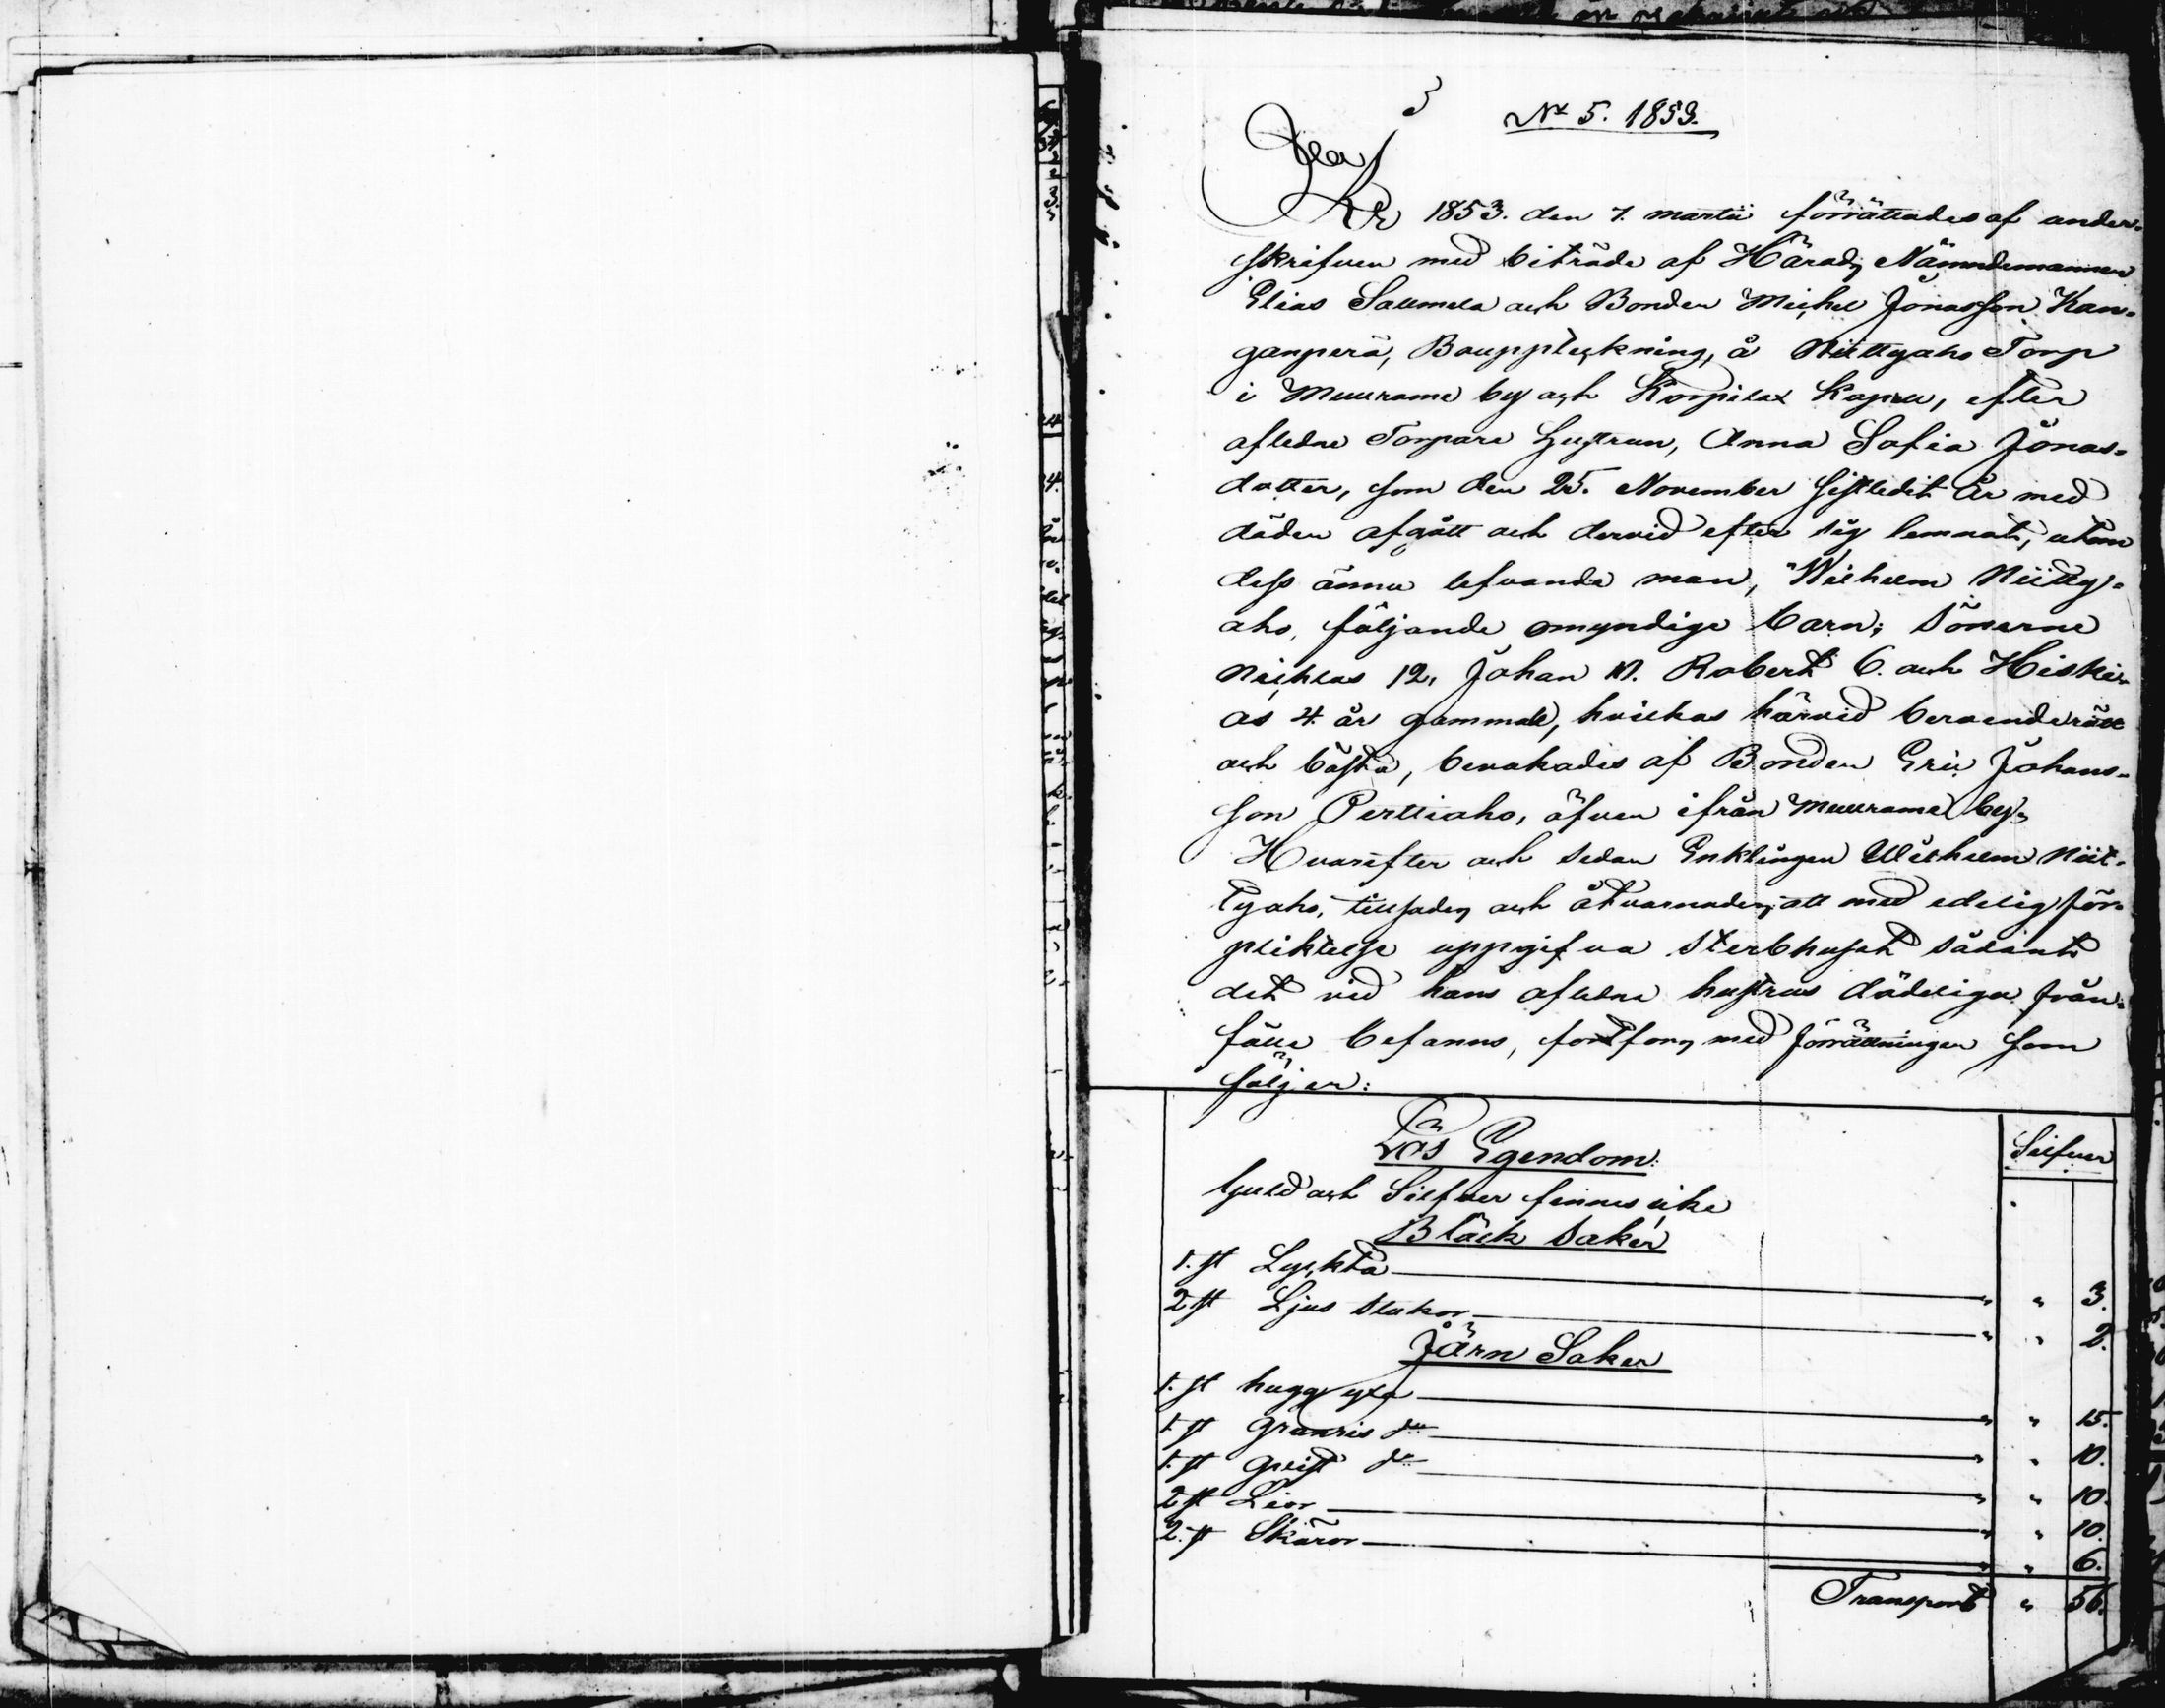 3
No 5. 1853.
År 1853. den 7. martii förrättades af under-
skrifven med biträde af Härads Nämndemannen
Elias Sallmela och Bonden Michel Jonasson Kan-
ganperä, Bouppteckning, å Niittyaho Torp
i Muurame by och Korpilax Kapell, efter
aflidne Torpare hustrun, Anna Sofia Jonas-
dotter, som den 25. November sistledit År med
döden afgått och dervid efter sig lemnat, utom
dess ännu lefvande man, Wilhelm Niitty-
aho, följande omyndige barn; Sönerne
Nichlas 12, Johan 10. Robert 6. och Hiski-
as 4. år gammal, hvilkas härvid beroende rätt
och bästa, bevakades af Bonden Eric Johans-
son Perttiaho, äfven ifrån Muurame by;
Hvarefter och sedan Enklingen Wilhelm Niit-
tyaho, tillsades och åtvarnades, att med edelig för-
pliktelse uppgifva Sterbhuset sådant
det vid hans aflidne hustrus dödeliga från-
fälle befanns, fortfors med förrättningen som
följer:
Lös Egendom:
Silfver
Guld och Silfver finnes icke
Bläck Saker
1. st Lyckta " " 3.
2 st Ljus stakor " " 2.
Järn Saker
1. st hugg yxa " " 15.
1. st Granris do " " 10.
1. st qvist do " " 10.
2 st Lior " " 10.
2. st Skäror " " 6.
Transport " 56.